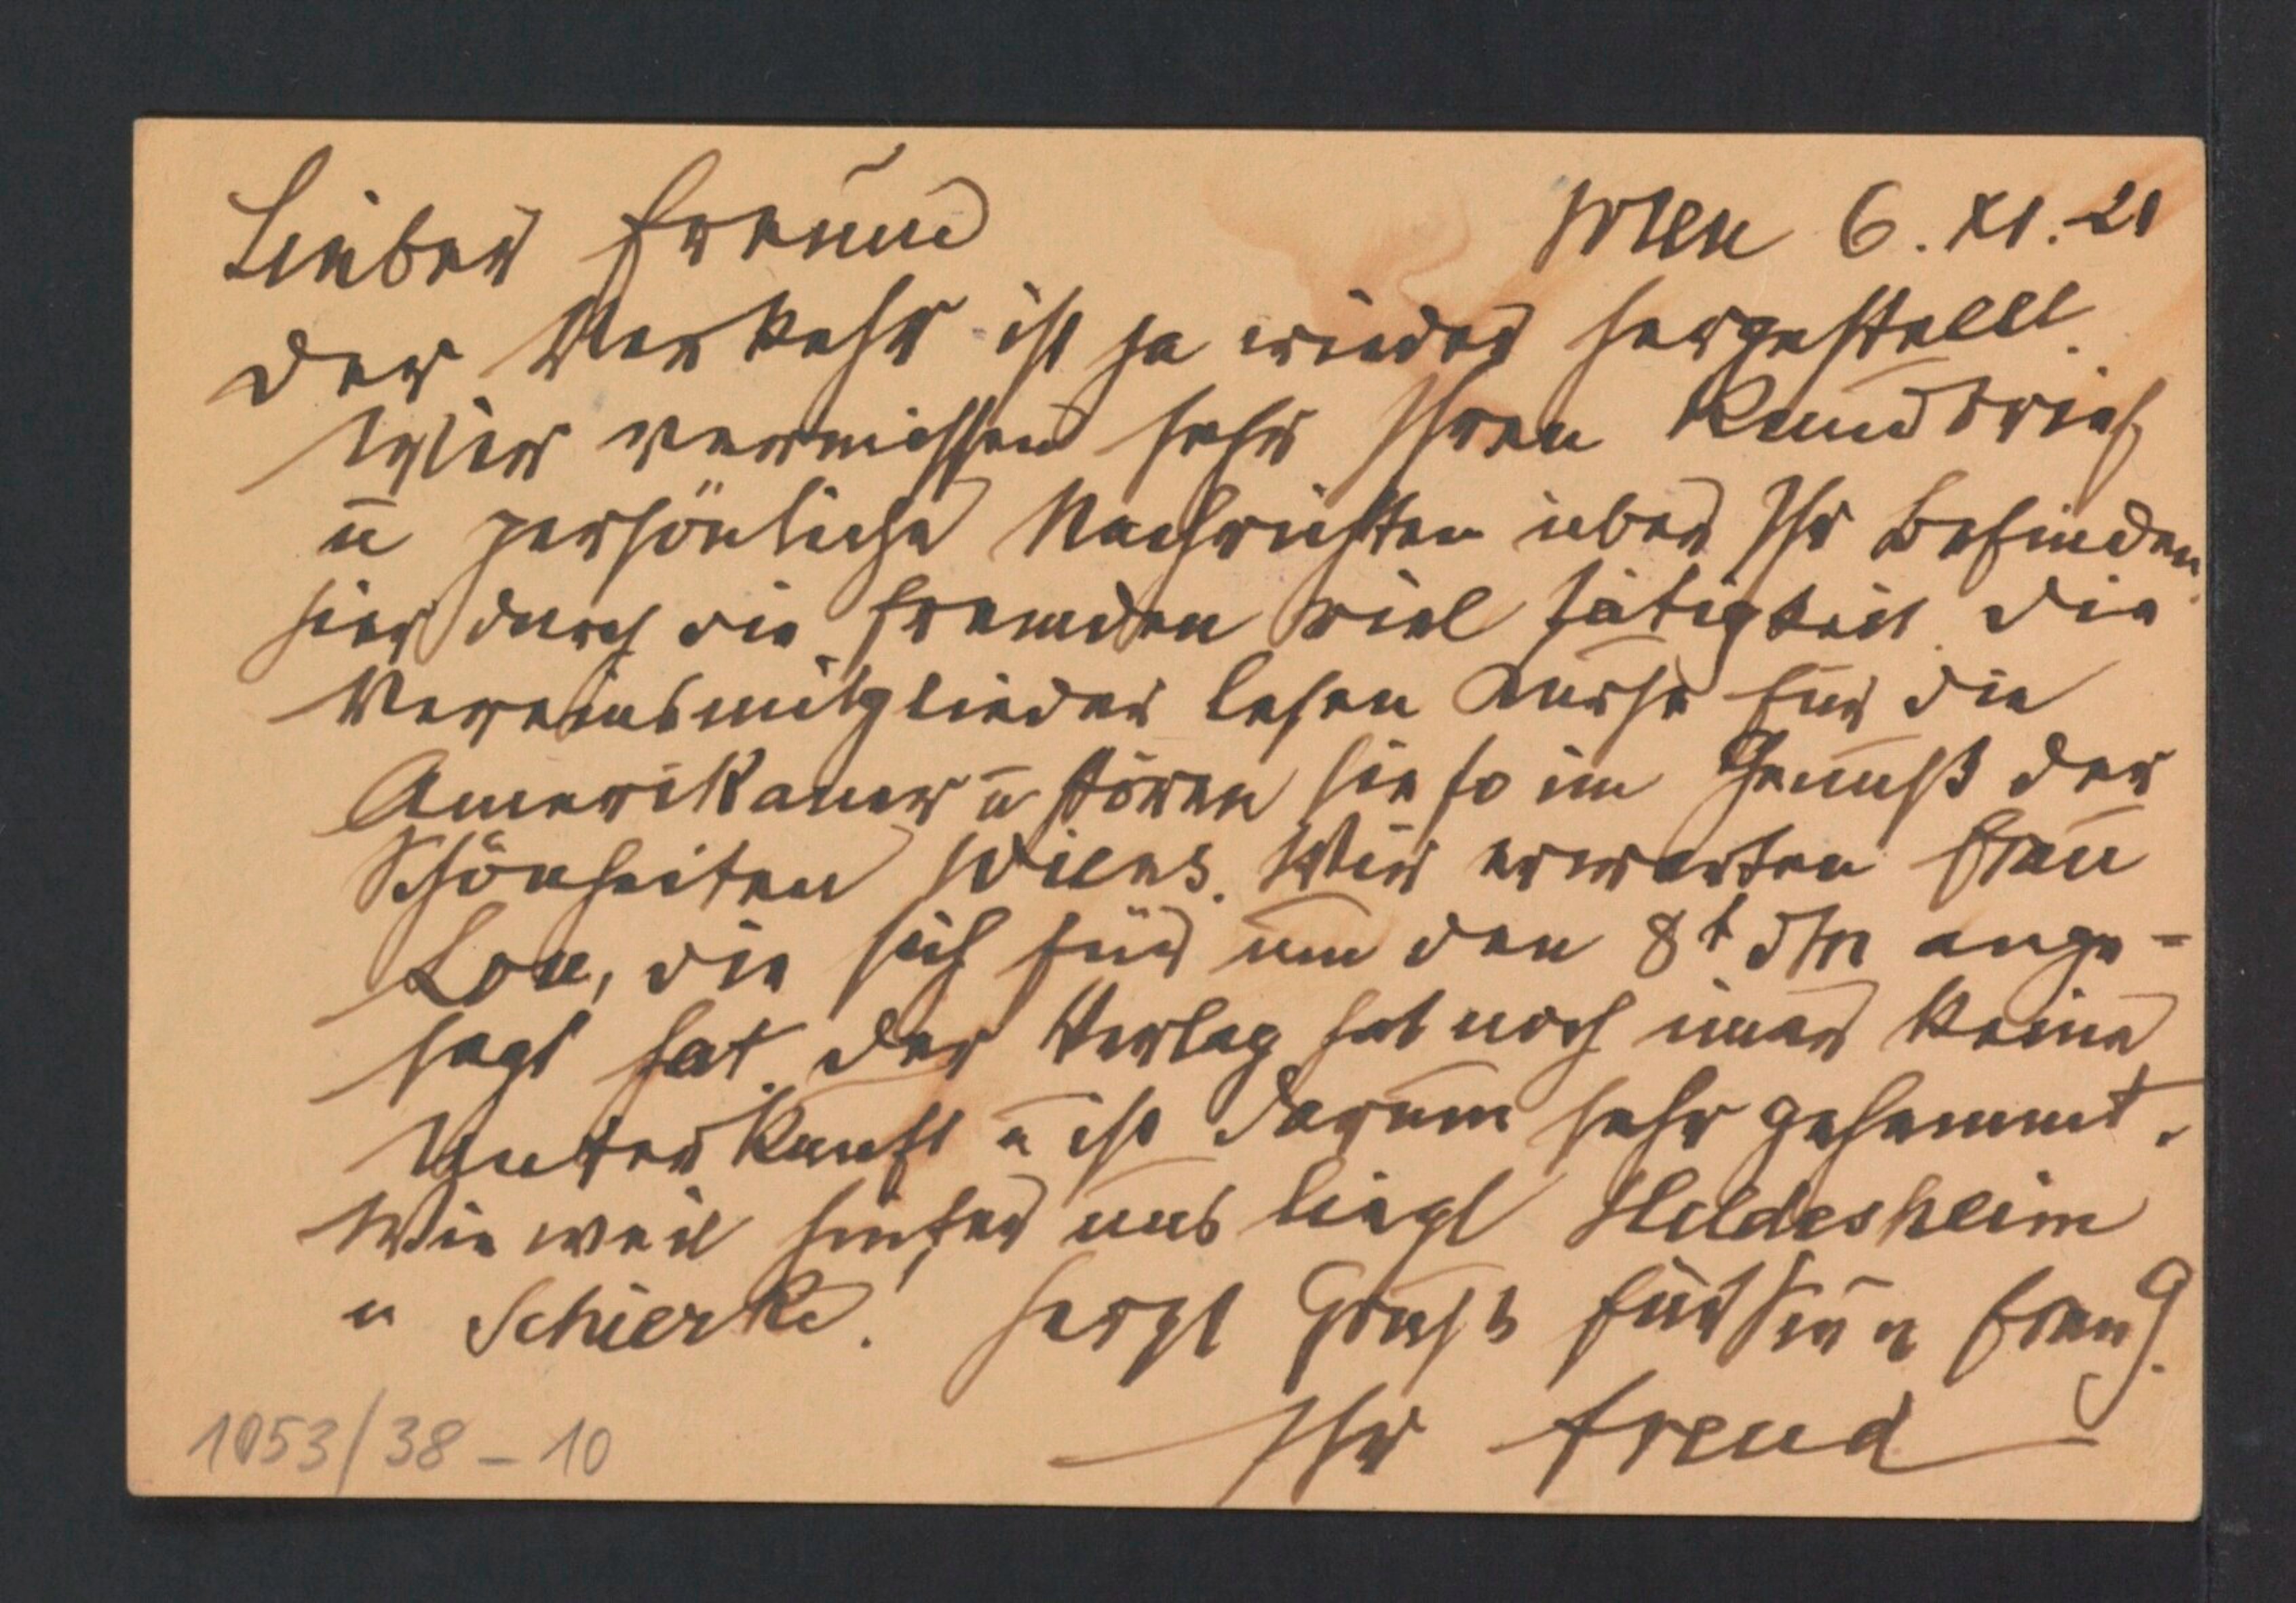 Wien 6. XI. 21
Lieber Freund
Der Verkehr ist ja wieder hergestellt.
Wir vermissen sehr Ihren Rundbrief
u persönliche Nachrichten über Ihr Befinden.
Hier durch die Fremden viel Tätigkeit. Die
Vereinsmitglieder lesen Kurse für die
Amerikaner u stören sie so im Genuß der
Schönheiten Wiens. Wir erwarten Frau
Lou, die sich für um den 8t dM ange-
sagt hat. Der Verlag hat noch imer keine
Unterkunft u ist darum sehr gehemmt.
Wie weit hinter uns liegt Hildesheim
u Schierke! Herzl Gruß für Sie u Frau G.
Ihr Freud
1053/38-10